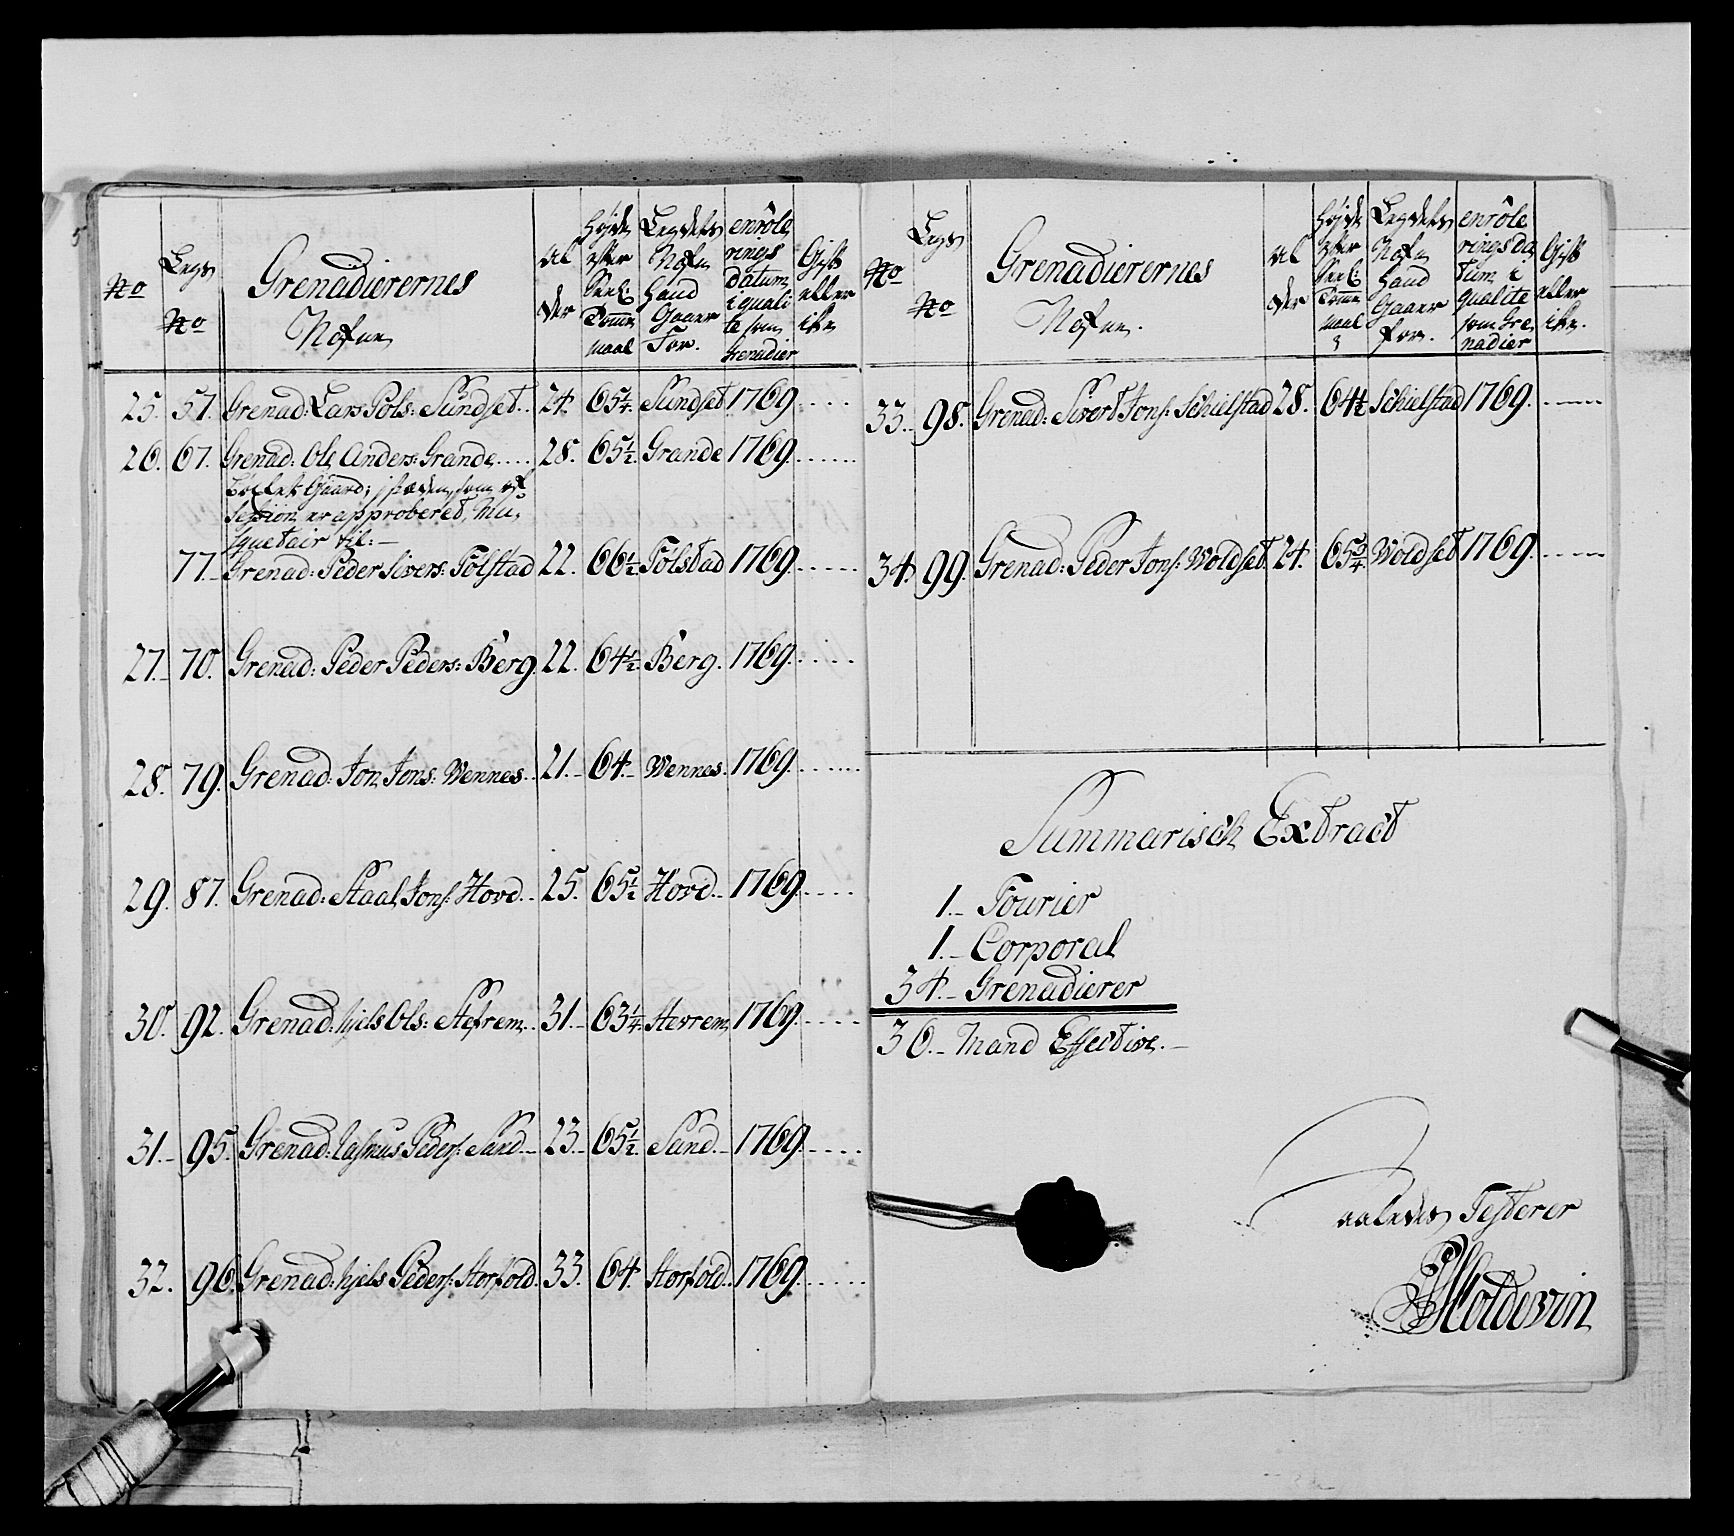 No
Legs No
Grenadierernes Nafne
Alder
Høyde efter Seel: Tomme maal
Legdets Nafn hand Gaaer For.
enrôle rings datum i qualite som Grenadier
Gift eller ikke
25. 57. Grenad: Lars Pols: Sundset. 24. 65 1/4. Sundset 1769.
26. 67. Grenad: Ole Anders: Grande 28. 65 1/2. Grande 1769.
Gaard; som
Session er approberet, Mu,
squetair til:
77. Grenad: Peder Sivers: Fölstad 22. 66 1/2 Fölstad 1769.
27. 70. Grenad: Peder Peders: Berg. 22. 64 1/2 Berg. 1769.
28. 79. Grenad: Jon Jons: Wennes. 21. 64. Wennes. 1769.
29. 87. Grenad: Staal Jons: Hovd. 25. 65 1/2 Hovd. 1769.
30. 92. Grenad: Niels Ols: Stefrem. 31. 63 1/4. Stevrem 1769.
31. 95. Grenad: Rasmus Peders: Sand. 23. 65 1/2. Sand. 1769.
32. 96. Grenad: Niels Peders: Storfold. 33. 64. Storfold. 1769.
No
Legs No
Grenadierernes Nafne.
Alder
Høyde efter Seel: Tomme maal
Legdets Nafn hand Gaaer for.
enrôle rings datum i qualite som Grenadier
Gift eller ikke.
33. 98. Grenad: Sivert Jons: Schielstad 28. 64 1/2 Schielstad 1769.
34. 99. Grenad: Peder Jons: Woldset. 24. 65 3/4 Woldset 1769.
Summarisch Extract
1. Fourier
1. Corporal
34. Grenadierer
36. Mand Effective.
Saaledes Testerer
Coldevin